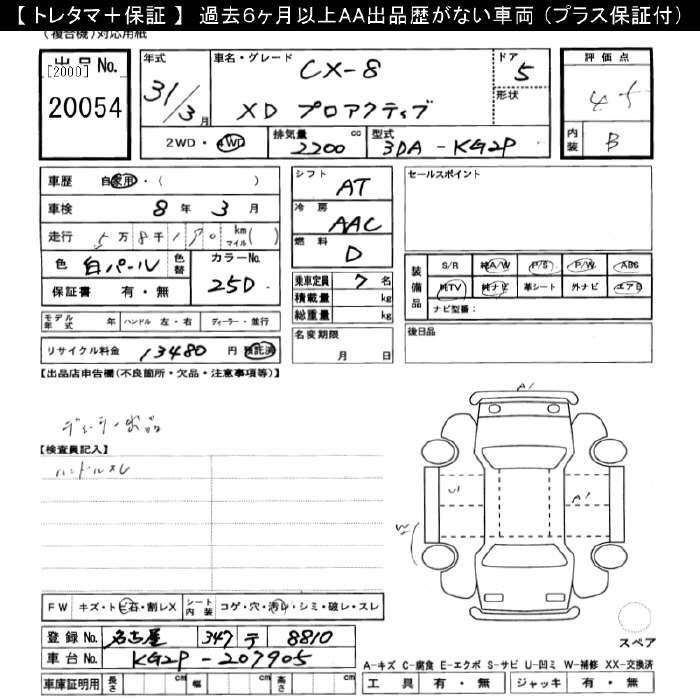 【トレタマ＋保証】 過去6ヶ月以上AA出品歴がない車両（プラス保証付）
（複合機）対応用紙
出品No.
[2000]
20054
年式
31/3月
車名・グレード
CX-8
XD プロアクティブ
ドア
5
形状
評価点
内装
B
2WD・4WD
排気量 2200 cc
型式 3DA-KG2P
車歴 自家用・（ ）
車検 8年 3月
走行 5万8千170 km マイル( )
色 白パール 色替
カラーNo. 25D
保証書 有・無
シフト AT
冷房 AAC
燃料 D
乗車定員 7名
積載量 kg
総重量 kg
セールスポイント
装備品
S/R 純A/W P/S P/W ABS
純TV 純ナビ 革シート 外ナビ エアB
ナビ型番：
モデル年式 年 ハンドル 左・右 ディーラー・並行
リサイクル料金 13480 円 預託済
名変期限 月 日
後日品
【出品店申告欄（不良箇所・欠品・注意事項等）】
ディーラー出品
【検査員記入】
ハンドルスレ
A1
U1
A1
W
FW キズ・トビ石・割レX シート内装 コゲ・穴・汚レ・シミ・破レ・スレ
スペア
登録No. 名古屋 347 テ 8810
車台No. KG2P-207905
A-キズ C-腐食 E-エクボ S-サビ U-凹ミ W-補修 XX-交換済
車庫証明用 長さ cm 幅 cm 高さ cm
工具 有・無 ジャッキ 有・無